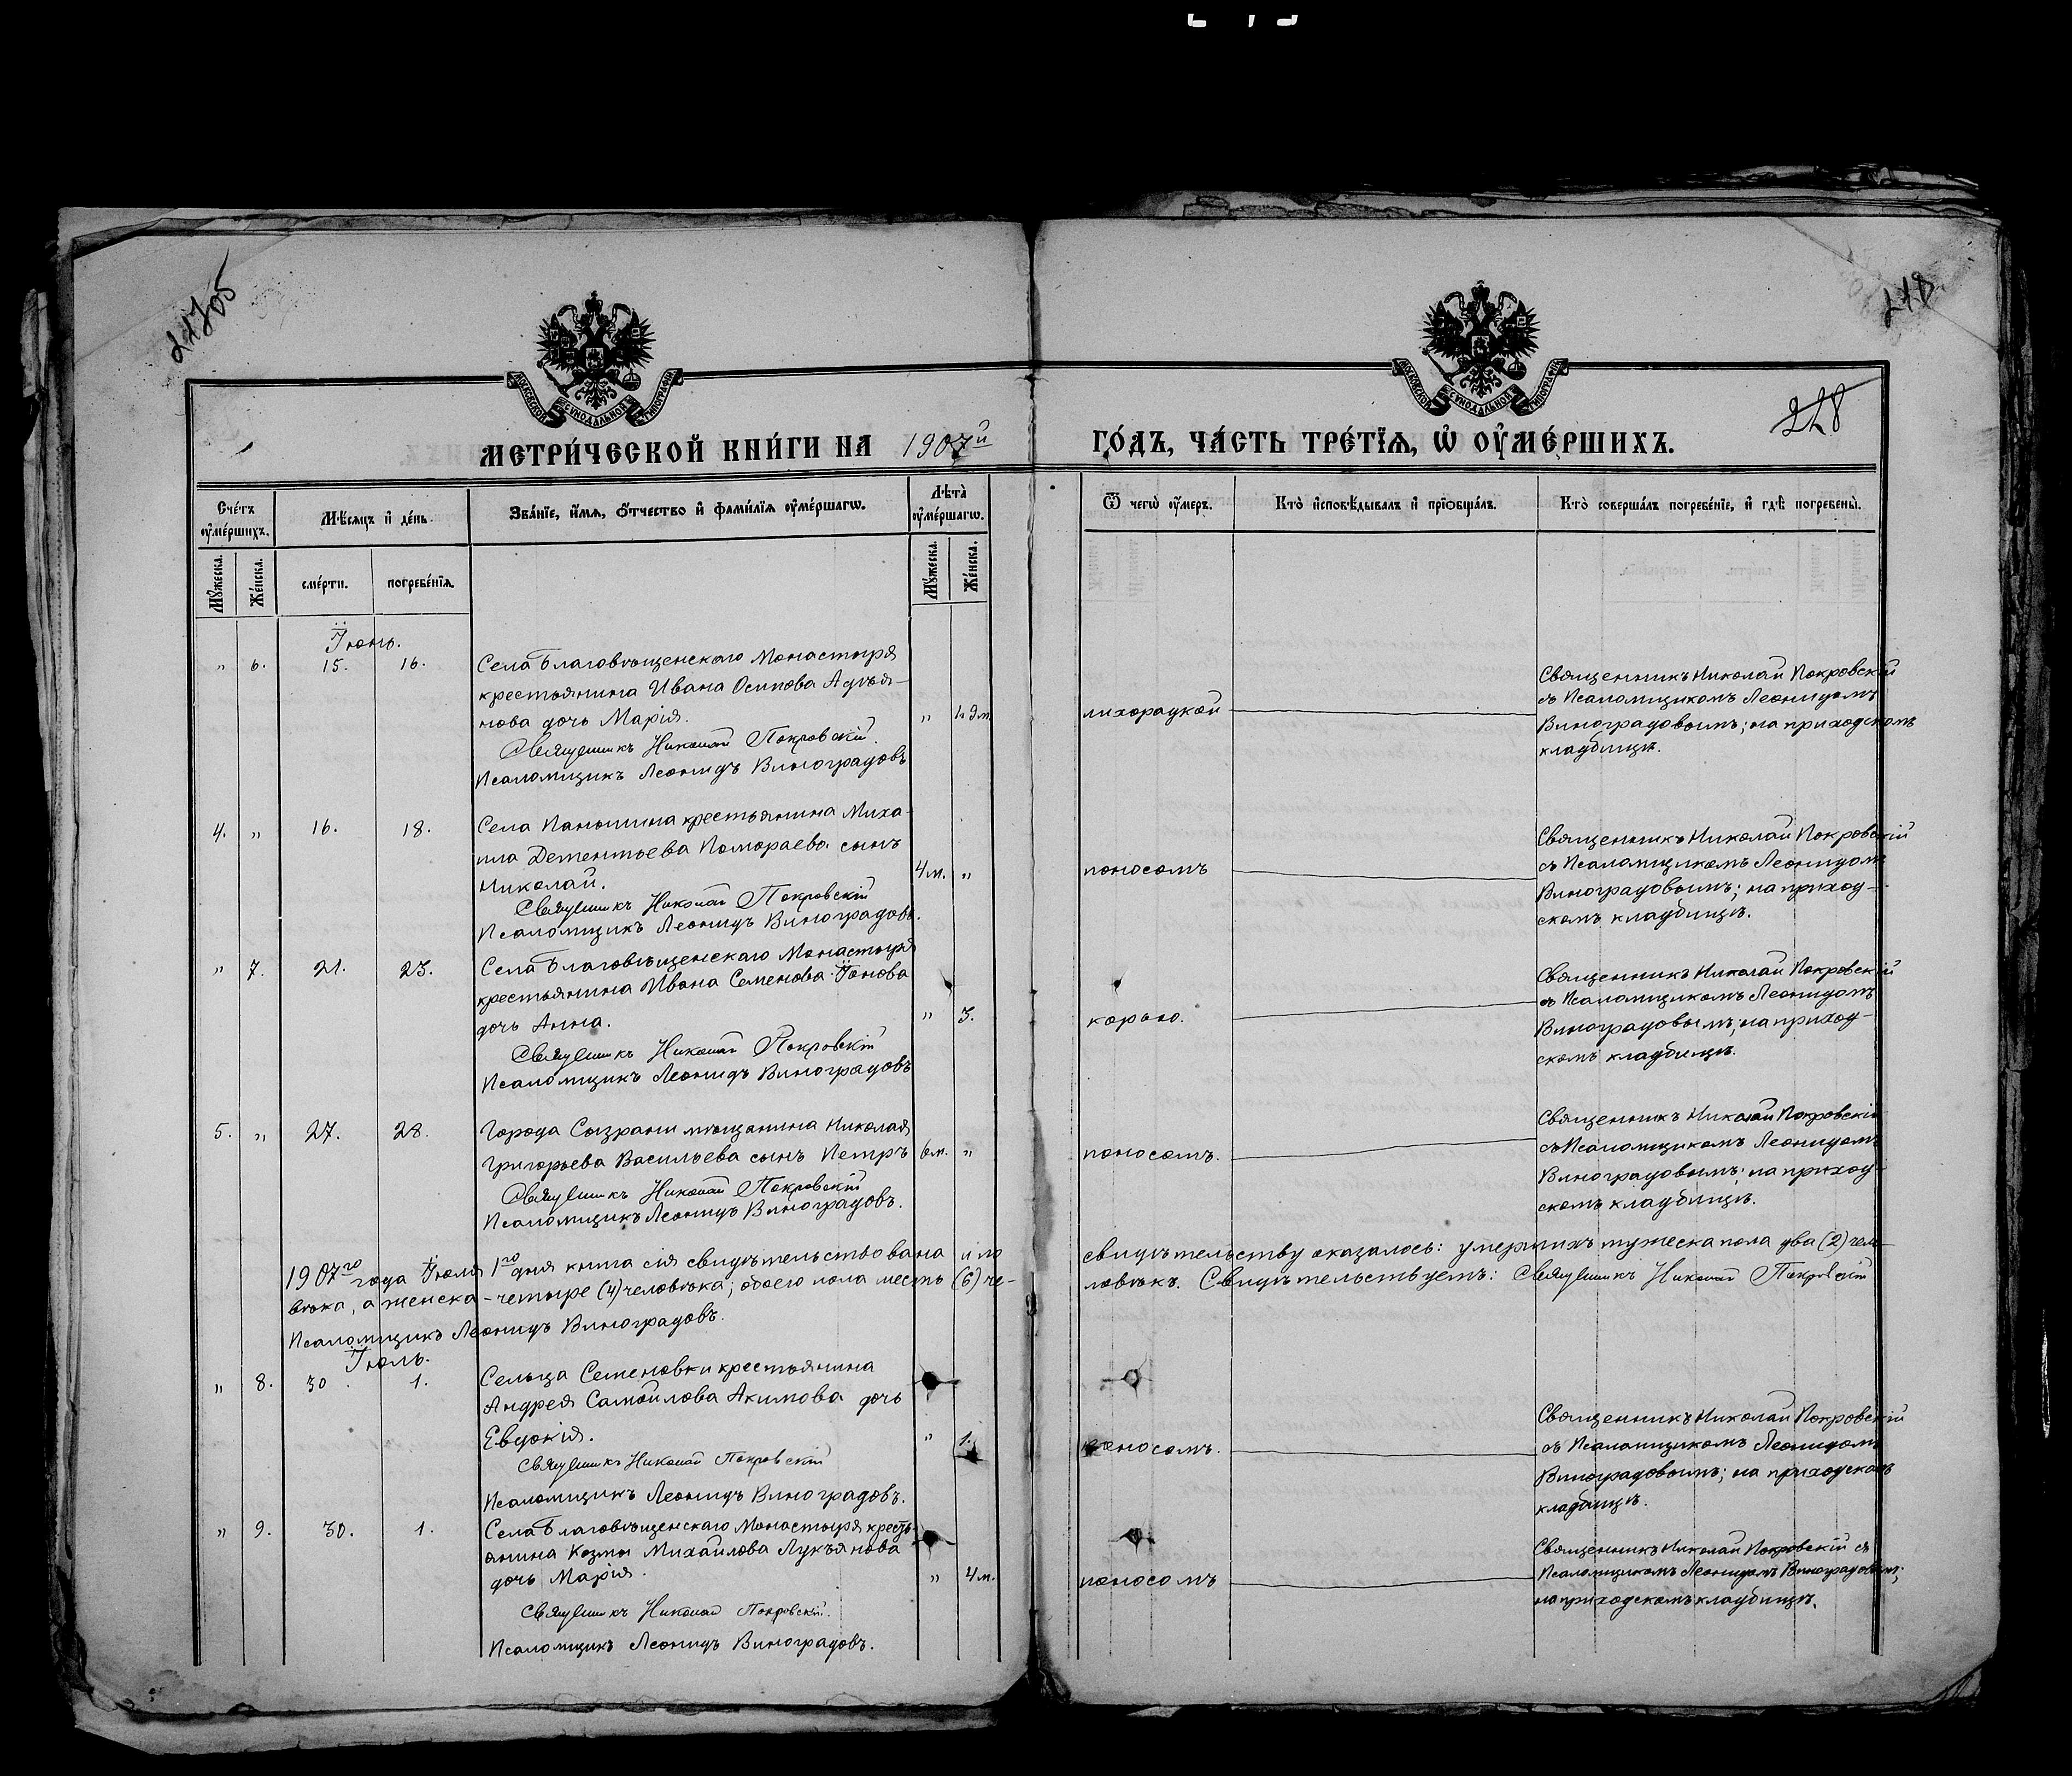 217об
218
228
МОСКОВСКОЙ СѴНОДАЛЬНОЙ ТИПОГРАФІИ
МОСКОВСКОЙ СѴНОДАЛЬНОЙ ТИПОГРАФІИ
МЕТРИ́ЧЕСКОЙ КНИ́ГИ НА 1907й ГО́ДЪ, ЧА́СТЬ ТРЕ́ТІЯ, Ѡ ОУМЕ́РШИХЪ.
Сче́тъ оуме́ршихъ.
Мѣ́сяцъ и де́нь.
Зва́нїе, и́мя, о́тчество и фами́лїя оуме́ршагѡ.
Лѣта̀ оуме́ршагѡ.
Ѿ чегѡ̀ оу́меръ.
Кто̀ исповѣ́дывалъ и прїобща́лъ.
Кто̀ соверша́лъ погребе́нїе, и гдѣ̀ погребены̀.
Му́жеска.
Же́нска.
сме́рти.
погребе́нїя.
Му́жеска.
Же́нска.
Іюнь.
" 6. 15. 16.
Села Благовѣщенскаго Монастыря
крестьянина Ивана Осипова Адрья-
нова дочь Марія.
Священникъ Николай Покровскій.
Псаломщикъ Леонидъ Виноградовъ
"
лихорадкой
Священникъ Николай Покровскій
съ Псаломщикомъ Леонидомъ
Виноградовымъ; на приходскомъ
кладбищѣ.
4. " 16. 18.
Села Паньшина крестьянина Миха-
ила Дементьева Помораева сынъ
Николай.
Священникъ Николай Покровскій
Псаломщикъ Леонидъ Виноградовъ.
4 м. "
поносомъ
Священникъ Николай Покровскій
съ Псаломщикомъ Леонидомъ
Виноградовымъ; на приход-
скомъ кладбищѣ.
" 7. 21. 23.
Села Благовѣщенскаго Монастыря
крестьянина Ивана Семенова Іонова
дочь Анна.
Священникъ Николай Покровскій
Псаломщикъ Леонидъ Виноградовъ
" 3.
корью.
Священникъ Николай Покровскій
съ Псаломщикомъ Леонидомъ
Виноградовымъ; на приход-
скомъ кладбищѣ.
5. " 27. 28.
Города Сызрани мѣщанина Николая
Григорьева Васильева сынъ Петръ
Священникъ Николай Покровскій
Псаломщикъ Леонидъ Виноградовъ.
6 м. "
поносомъ.
Священникъ Николай Покровскій
съ Псаломщикомъ Леонидомъ
Виноградовымъ; на приход-
скомъ кладбищѣ.
1907го года Іюля 1го дня книга сія свидѣтельствована и по свидѣтельству оказалось: умершихъ мужеска пола два (2) чело-
вѣка, а женска - четыре (4) человѣка; обоего пола шесть (6) че-ловѣкъ. Свидѣтельствуемъ: Священникъ Николай Покровскій
Псаломщикъ Леонидъ Виноградовъ.
Іюль.
" 8. 30. 1.
Сельца Семеновки крестьянина
Андрея Самойлова Акимова дочь
Евдокія.
Священникъ Николай Покровскій
Псаломщикъ Леонидъ Виноградовъ.
" 1.
поносомъ.
Священникъ Николай Покровскій
съ Псаломщикомъ Леонидомъ
Виноградовымъ; на приходскомъ
кладбищѣ.
" 9. 30. 1.
Села Благовѣщенскаго Монастыря кресть-
янина Козмы Михайлова Лукъянова
дочь Марія.
Священникъ Николай Покровскій.
Псаломщикъ Леонидъ Виноградовъ.
" 4 м.
поносомъ
Священникъ Николай Покровскій съ
Псаломщикомъ Леонидомъ Виноградовымъ;
на приходскомъ кладбищѣ.